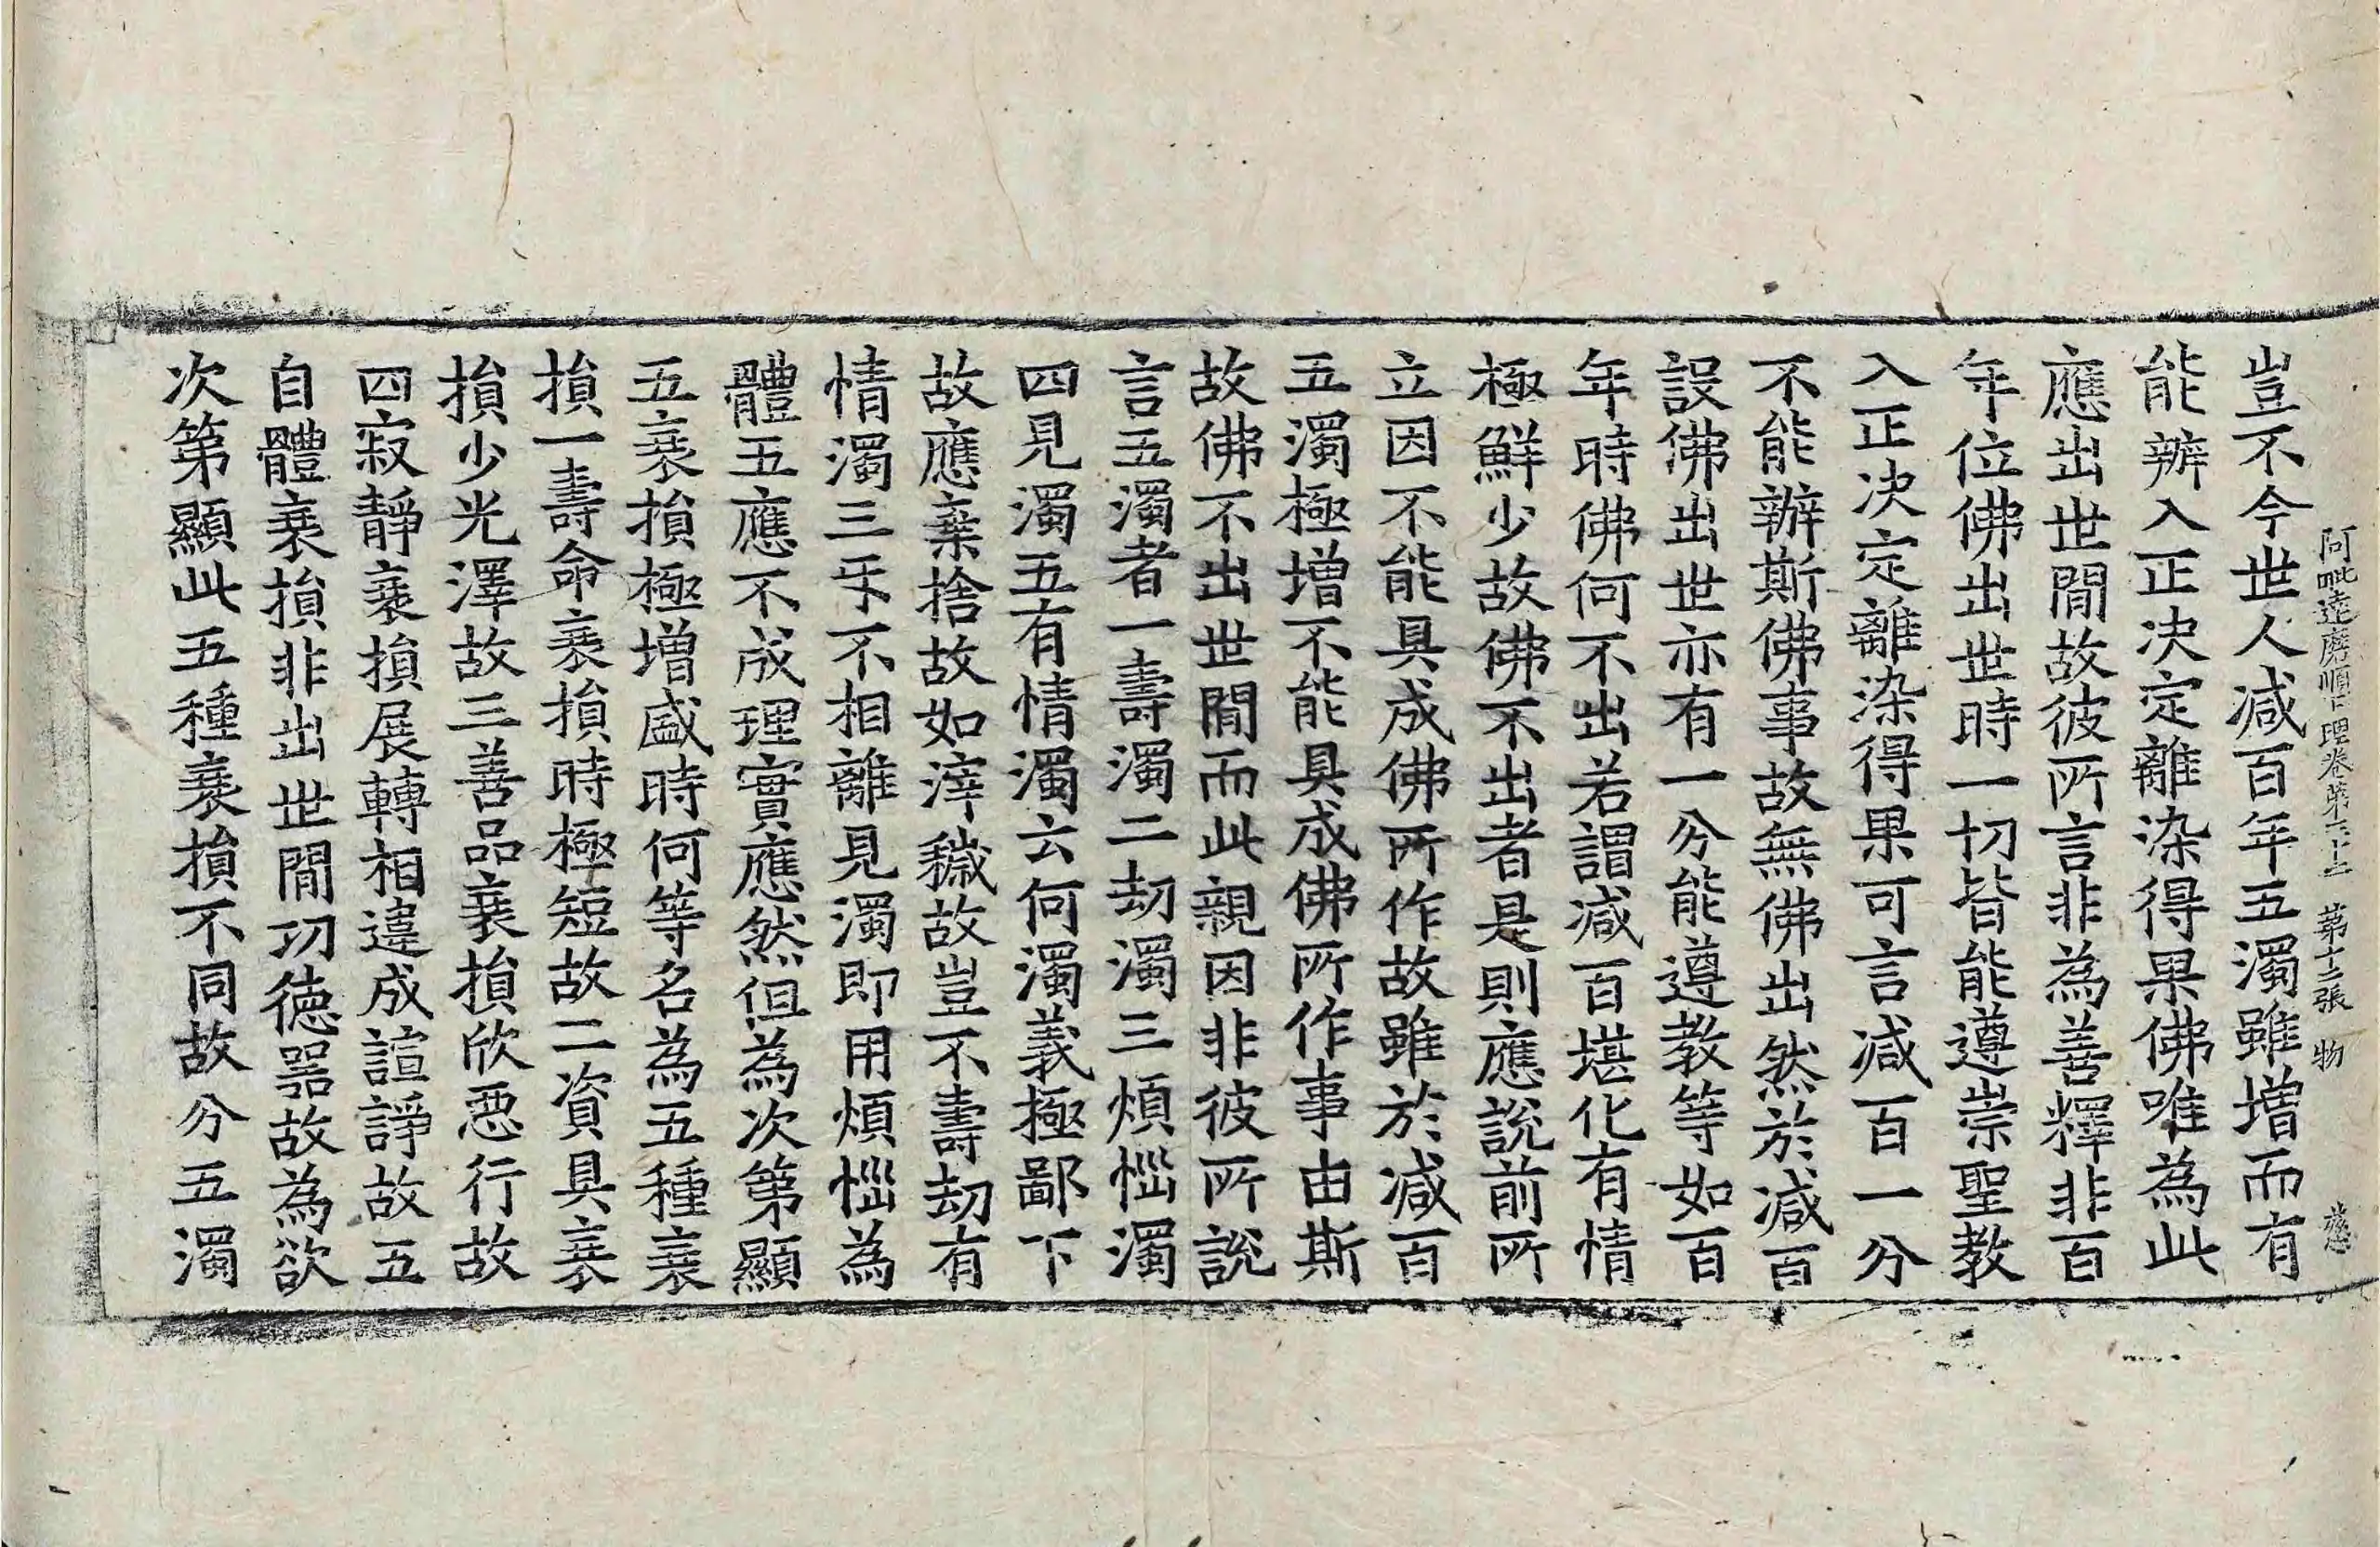 阿毗達磨順正理卷第三十二 第十二張 物
豈不今世人減百年五濁雖增而有
能辦入正決定離染得果佛唯為此
應出世間故彼所言非為善釋非百
年位佛出世時一切皆能遵崇聖教
入正決定離染得果可言減百一分
不能辦斯佛事故無佛出然於減百
設佛出世亦有一分能遵教等如百
年時佛何不出若謂減百堪化有情
極鮮少故佛不出者是則應說前所
立因不能具成佛所作故雖於減百
五濁極增不能具成佛所作事由斯
故佛不出世間而此親因非彼所說
言五濁者一壽濁二劫濁三煩惱濁
四見濁五有情濁云何濁義極鄙下
故應棄捨故如滓穢故豈不壽劫有
情濁三互不相離見濁即用煩惱為
體五應不成理實應然但為次第顯
五衰損極增盛時何等名為五種衰
損一壽命衰損時極短故二資具衰
損少光澤故三善品衰損欣惡行故
四寂靜衰損展轉相違成諠諍故五
自體衰損非出世間功德器故為欲
次第顯此五種衰損不同故分五濁